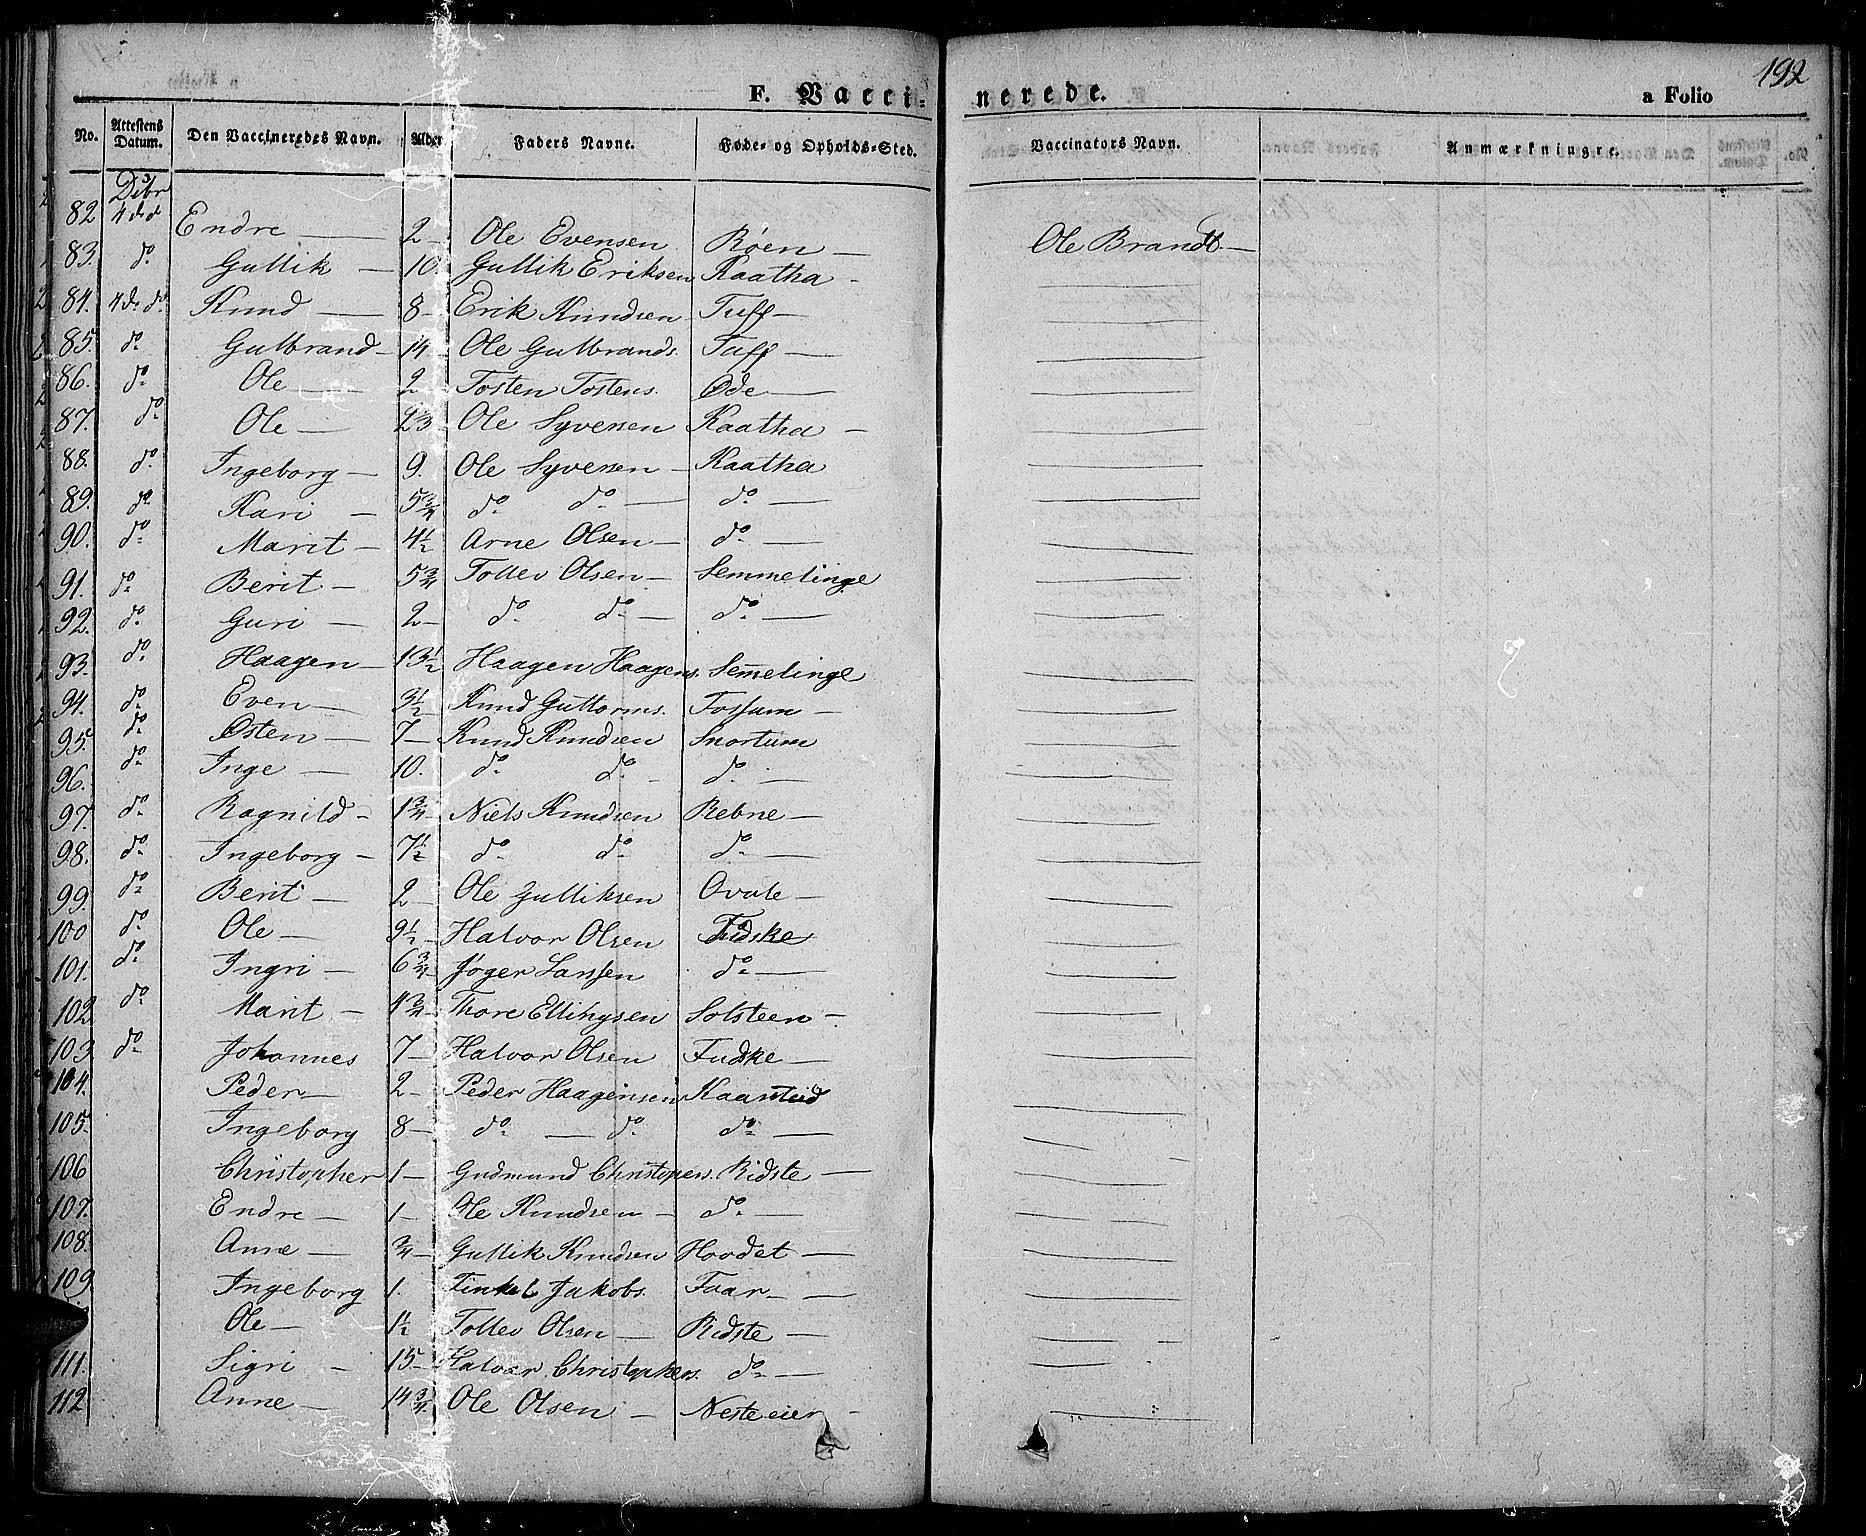 192
F. Vaccinerede. a Folio
No. Attestens Datum. Den Vaccineredes Navn. Alder Faders Navne. Føde- og Opholds-Sted. Vaccinators Navn. Anmærkningre.
Dcbr
82 4 do Endre — 2 — Ole Evensen Røen — Ole Brandt —
83. do Gullik — 10. Gullik Eriksen Kaatha —
84. 4 do do Knud — 8 — Erik Knudsen Tuff —
85. do Gulbrand — 14 Ole Gulbrands. Tuff —
86. do Ole — 2 — Tosten Tostens. Øde —
87. do Ole — Ole Syversen Kaatha —
88. do Ingeborg — 9. Ole Syversen — Kaatha
89. do Kari — 5 3/4 do do — do —
90. do Marit — 4 1/2 Arne Olsen — do —
91. do Berit — 5 3/4 Tollev Olsen — Semmelinge
92. do Guri — 2 — do do — do —
93. do Haagen — 13 1/2 Haagen Haagens. Sem̅elinge
94. do Even — 3 1/2 Knud Guttorms. Fossum —
95. do Østen — 7 — Knud Knudsen Snortum
96. do Inge — 10. do do — do —
97. do Ragnild — 1 3/4 Niels Knudsen Rebne —
98. do Ingeborg — 7 1/2 do do do —
99. do Berit — 2 — Ole Gulliksen Ovale —
100 do Ole — 9 1/2 — Halvor Olsen Fudske
101. do Ingri — 6 3/4 Jøger Larssen do —
102 do Marit — 4 3/4 Thore Ellingsen Solsteen —
103 do Johannes 7 — Halvor Olsen Fudske —
104. Peder — 2 — Peder Haagensen
105. Ingeborg 8 — do — do do —
106 Christopher 1 — Gudmund Christopers. Ridste —
107. Endre — 1 — Ole Knudsen — do —
108. Anne — 3/4 — Gullik Knudsen Hovdet —
109 Ingeborg 1. Jakobs. Faar —
Ole — 1 1/2 Tollev Olsen — Ridste —
111. Sigri — 15 — Halvor Christophers. do —
112 Anne — 14 3/4 Ole Olsen — Nesteeier —